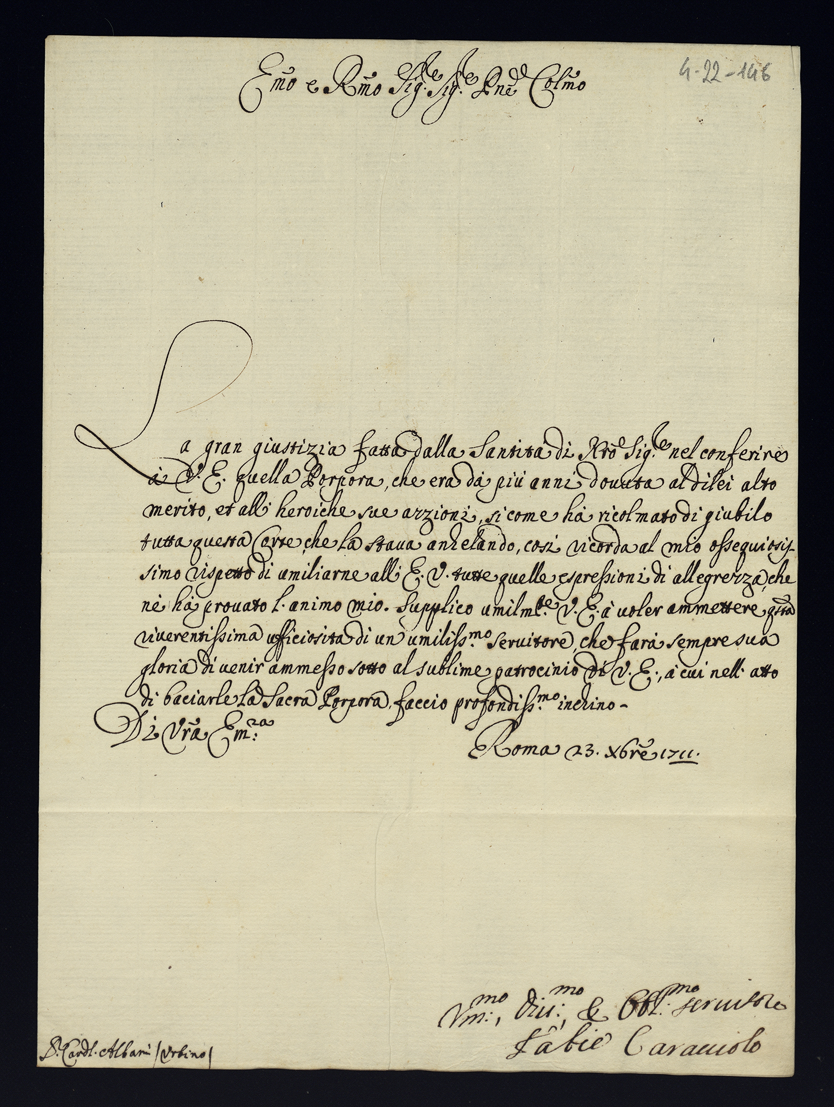 4-22-146
Em̃o e Rm̃o Sig.re Sig.re Pnẽ Colm̃o
La gran giustizia fatta dalla Santità di Nrõ Sig.re nel conferire
à V. E. quella Porpora, che era dà più anni dovuta al di lei alto
merito, et alli heroiche sue azzioni, si come hà ricolmato di giubilo
tutta questa Corte, che la stava anhelando, così ricorda al mio ossequiosis-
simo rispetto di umiliarne all'E. V. tutte quelle espressioni di allegrezza, che
nè hà provato l'animo mio. Supplico umilm.te V. E. à voler ammettere qũsta
riverentissima ufficiosità di un umiliss.mo servitore, che farà sempre sua
gloria di venir ammesso sotto al sublime patrocinio di V. E., à cui nell'atto
di baciarle la Sacra Porpora, faccio profondiss.mo inchino-
Di Vrã Em.za
Roma 23. Xbrẽ 1711.
Vm:mo, Div:mo, & Obl:mo servitore
Fabie Caracciolo
S.r Cardl. Albani (Urbino)